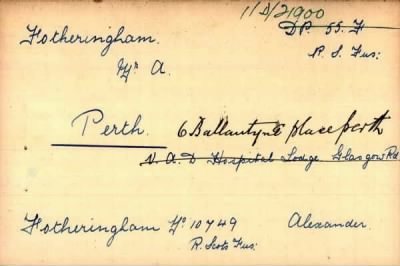 11/D/21900
Fotheringham. DP. 55. F
R. S. Fus:
A.
Perth. 6 Ballantyne place perth
V. A. D Hospital Lodge Glasgow Rd
Fotheringham 10749 Alexander.
R. Scots Fus: